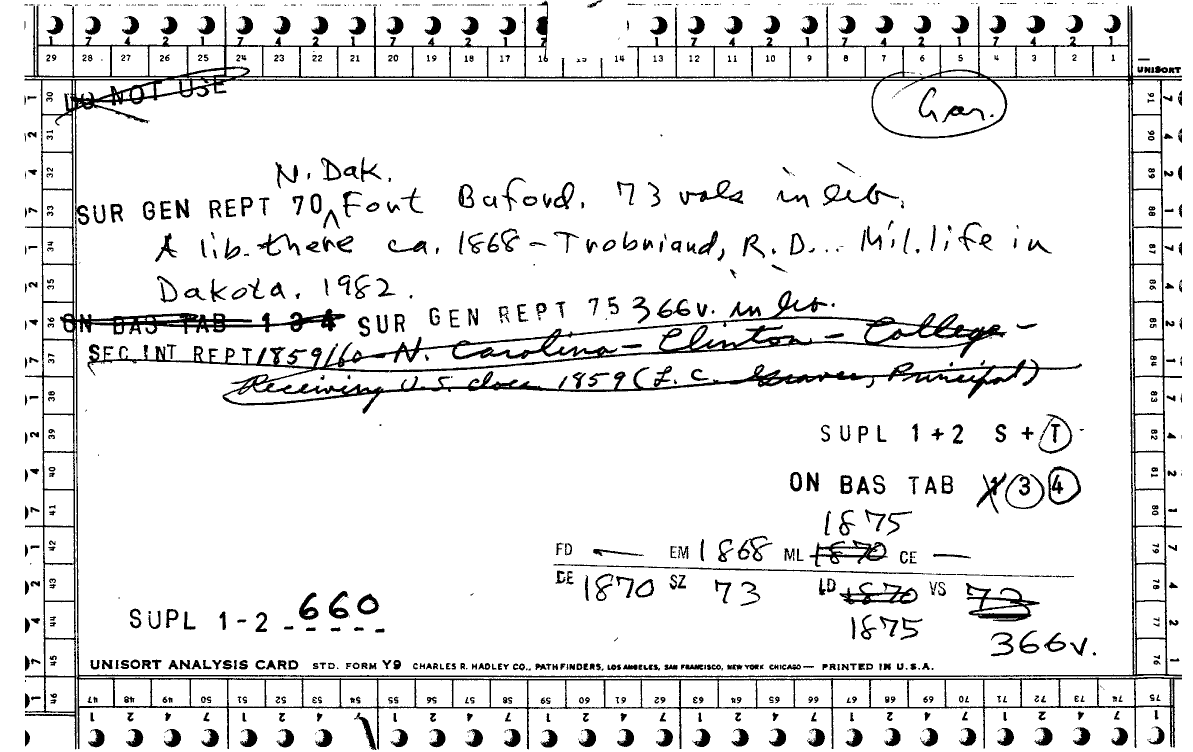 1 7 4 2 1 7 4 2 1 7 4 2 1 7 1 7 4 2 1 7 4 2 1 7 4 2 1
29 28 27 26 25 24 23 22 21 20 19 18 17 16 15 14 13 12 11 10 9 8 7 6 5 4 3 2 1
UNISORT
DO NOT USE
Gar.
N. Dak.
SUR GEN REPT 70 ^ Fort Buford. 73 vols in lib.
A lib. there ca. 1868 - Trobriand, R.D... Mil. life in
Dakota. 1982.
ON BAS TAB 1 3 4 SUR GEN REPT 75 366v. in lib.
SEC.INT REPT 1859/60 - N. Carolina - Clinton - College -
Receiving U.S. docs 1859 (L.C. Graves, Principal)
SUPL 1+2 S+T
ON BAS TAB 1 3 4
1875
FD — EM 1868 ML 1870 CE —
DE 1870 SZ 73 LD 1870 VS 73
1875 366v.
SUPL 1-2 660
UNISORT ANALYSIS CARD STD. FORM Y9 CHARLES R. HADLEY CO., PATHFINDERS, LOS ANGELES, SAN FRANCISCO, NEW YORK CHICAGO — PRINTED IN U.S.A.
30 31 32 33 34 35 36 37 38 39 40 41 42 43 44 45 46
91 90 89 88 87 86 85 84 83 82 81 80 79 78 77 76 75
47 48 49 50 51 52 53 54 55 56 57 58 59 60 61 62 63 64 65 66 67 68 69 70 71 72 73 74 75